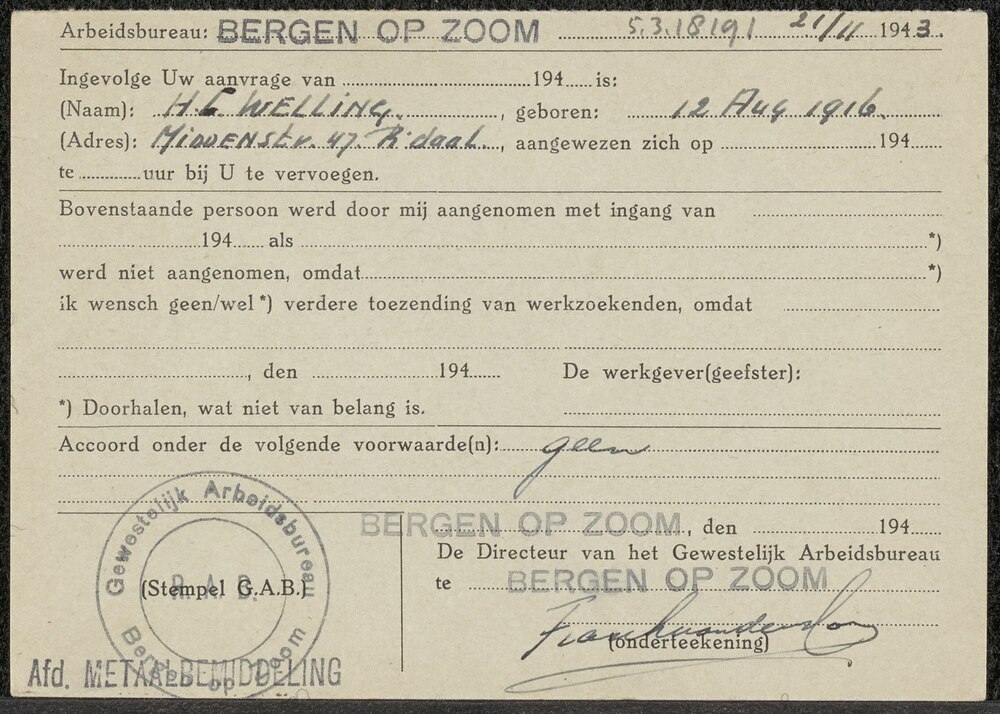 Arbeidsbureau: BERGEN OP ZOOM 5.3.18191 21/11 1943.
Ingevolge Uw aanvrage van ........ 194.... is:
(Naam): H.C WELLING, geboren: 12 Aug 1916.
(Adres): MIDDENSTr. 47. R'daal, aangewezen zich op ........ 194....
te ........ uur bij U te vervoegen.
Bovenstaande persoon werd door mij aangenomen met ingang van ........
........ 194.... als ........ *)
werd niet aangenomen, omdat ........ *)
ik wensch geen/wel *) verdere toezending van werkzoekenden, omdat ........
........, den ........ 194.... De werkgever(geefster):
*) Doorhalen, wat niet van belang is. ........
Accoord onder de volgende voorwaarde(n): geen
BERGEN OP ZOOM, den ........ 194....
De Directeur van het Gewestelijk Arbeidsbureau
te BERGEN OP ZOOM
(onderteekening)
Gewestelijk Arbeidsbureau
R.A.B.
(Stempel G.A.B.)
Bergen op Zoom
Afd. METAALBEMIDDELING